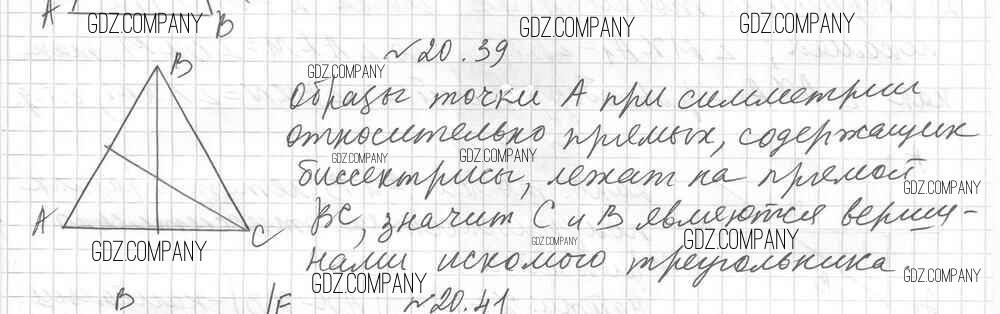 A B
GDZ.COMPANY GDZ.COMPANY GDZ.COMPANY
№20.39
B
GDZ.COMPANY
Образы точки А при симметрии
относительно прямых, содержащих
GDZ.COMPANY GDZ.COMPANY
биссектрисы, лежат на прямой
GDZ.COMPANY
A C
ВС, значит С и В являются верши-
GDZ.COMPANY GDZ.COMPANY GDZ.COMPANY
нами искомого треугольника.
GDZ.COMPANY GDZ.COMPANY
B F
№20.41